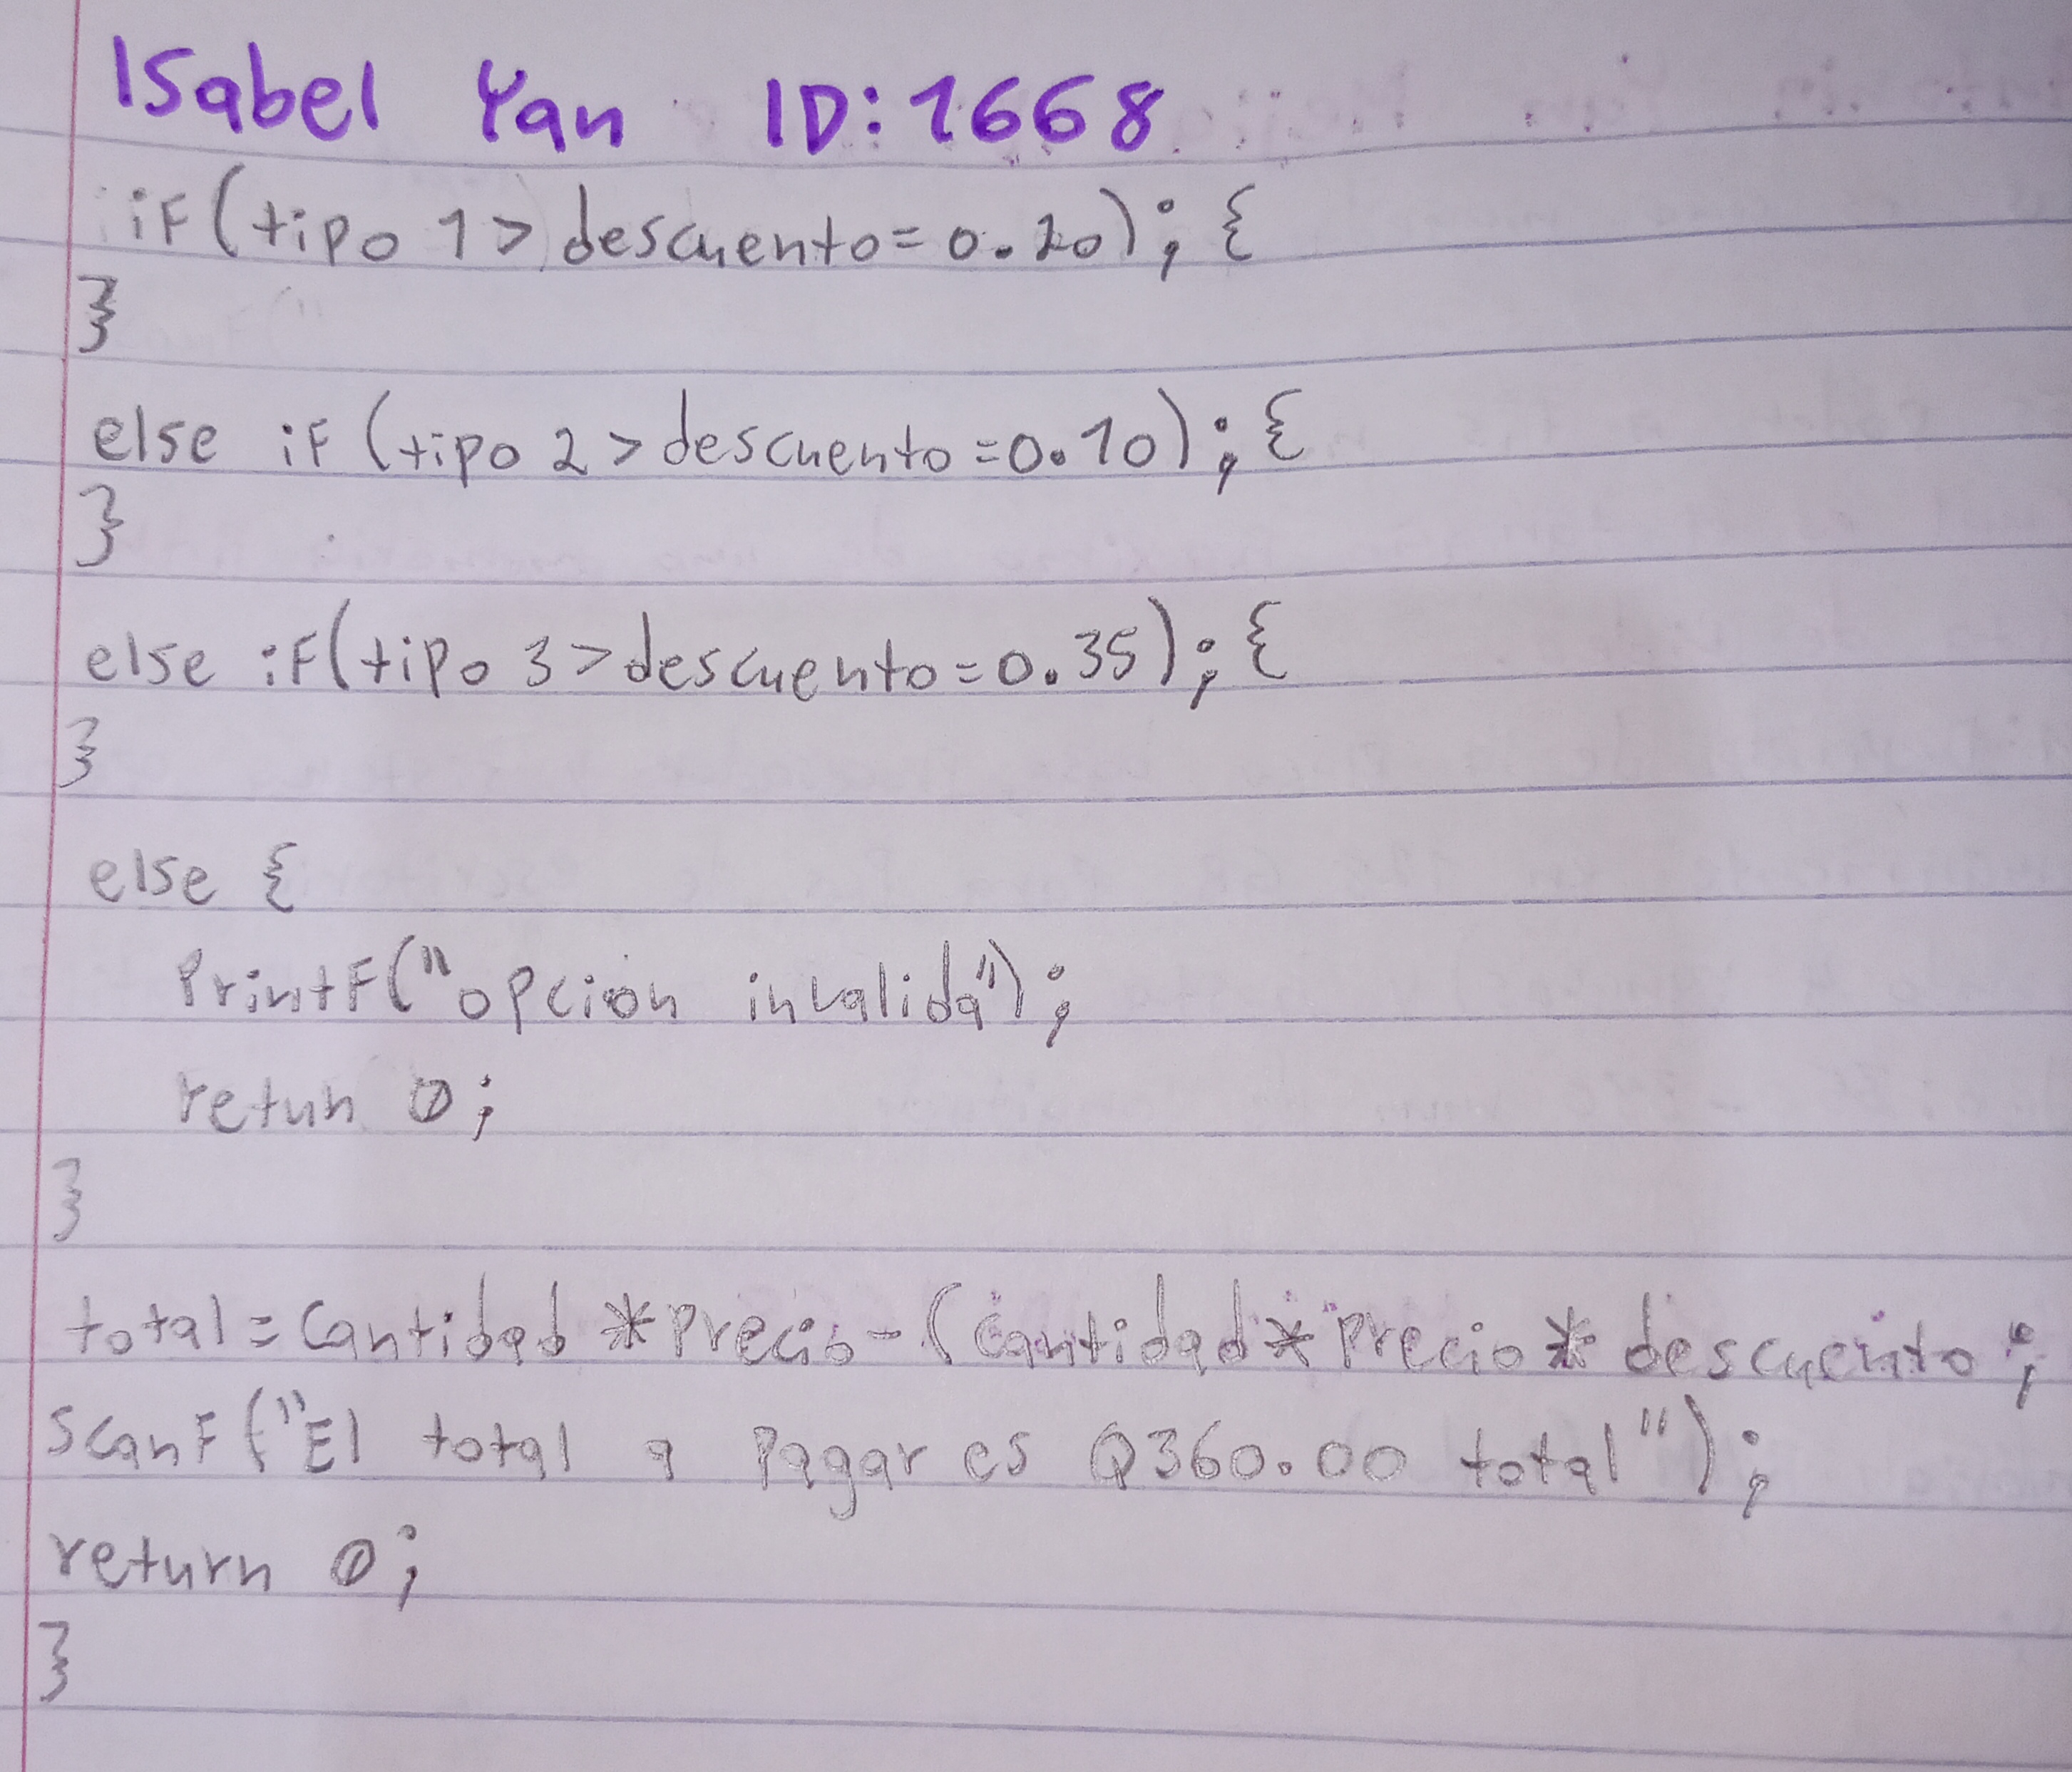 Isabel Yan ID:1668
if(tipo 1> descuento= 0.20); {
}
else if (tipo 2 > descuento =0.10); {
}
else if(tipo 3 > descuento=0.35); {
}
else {
Printf("opcion invalida");
retun 0;
}
total= Cantidad *Precio-(Cantidad*Precio* descuento;
Scanf ("El total a Pagar es Q360.00 total");
return 0;
}